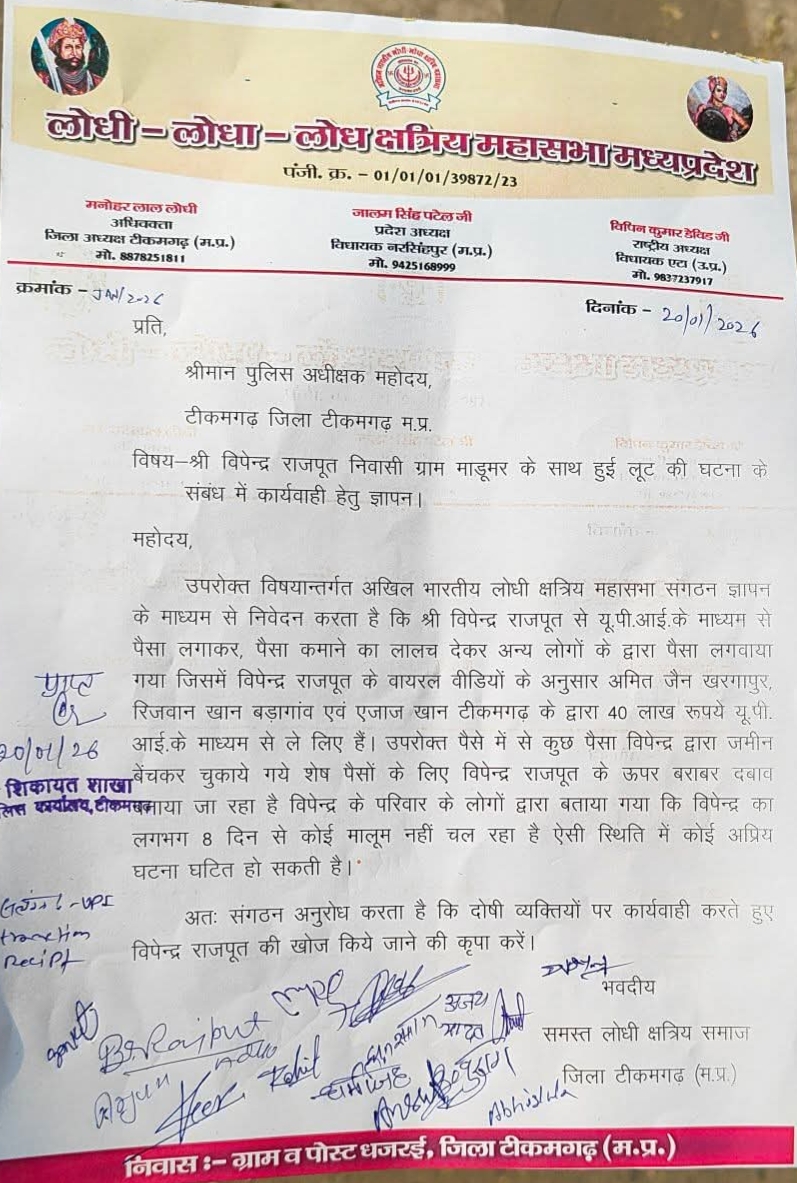 लोधी – लोधा – लोध क्षत्रिय महासभा मध्यप्रदेश
पंजी. क्र. – 01/01/01/39872/23
मनोहर लाल लोधी
अधिवक्ता
जिला अध्यक्ष टीकमगढ़ (म.प्र.)
मो. 8878251811
जालम सिंह पटेल जी
प्रदेश अध्यक्ष
विधायक नरसिंहपुर (म.प्र.)
मो. 9425168999
विपिन कुमार डेविड जी
राष्ट्रीय अध्यक्ष
विधायक एटा (उ.प्र.)
मो. 9837237917
क्रमांक – JAN/2026
दिनांक – 20/01/2026
प्रति,
श्रीमान पुलिस अधीक्षक महोदय,
टीकमगढ़ जिला टीकमगढ़ म.प्र.
विषय–श्री विपेन्द्र राजपूत निवासी ग्राम माडूमर के साथ हुई लूट की घटना के
संबंध में कार्यवाही हेतु ज्ञापन।
महोदय,
उपरोक्त विषयान्तर्गत अखिल भारतीय लोधी क्षत्रिय महासभा संगठन ज्ञापन
के माध्यम से निवेदन करता है कि श्री विपेन्द्र राजपूत से यू.पी.आई.के माध्यम से
पैसा लगाकर, पैसा कमाने का लालच देकर अन्य लोगों के द्वारा पैसा लगवाया
गया जिसमें विपेन्द्र राजपूत के वायरल वीडियों के अनुसार अमित जैन खरगापुर,
रिजवान खान बड़ागांव एवं एजाज खान टीकमगढ़ के द्वारा 40 लाख रूपये यू.पी.
आई.के माध्यम से ले लिए हैं। उपरोक्त पैसे में से कुछ पैसा विपेन्द्र द्वारा जमीन
बेंचकर चुकाये गये शेष पैसों के लिए विपेन्द्र राजपूत के ऊपर बराबर दबाव
बनाया जा रहा है विपेन्द्र के परिवार के लोगों द्वारा बताया गया कि विपेन्द्र का
लगभग 8 दिन से कोई मालूम नहीं चल रहा है ऐसी स्थिति में कोई अप्रिय
घटना घटित हो सकती है।
अतः संगठन अनुरोध करता है कि दोषी व्यक्तियों पर कार्यवाही करते हुए
विपेन्द्र राजपूत की खोज किये जाने की कृपा करें।
प्राप्त
20/01/26
शिकायत शाखा
कार्यालय, टीकमगढ़
UPI
Recipt
भवदीय
समस्त लोधी क्षत्रिय समाज
जिला टीकमगढ़ (म.प्र.)
B.S.Rajput
अजय
यादव
निवास :– ग्राम व पोस्ट धजरई, जिला टीकमगढ़ (म.प्र.)